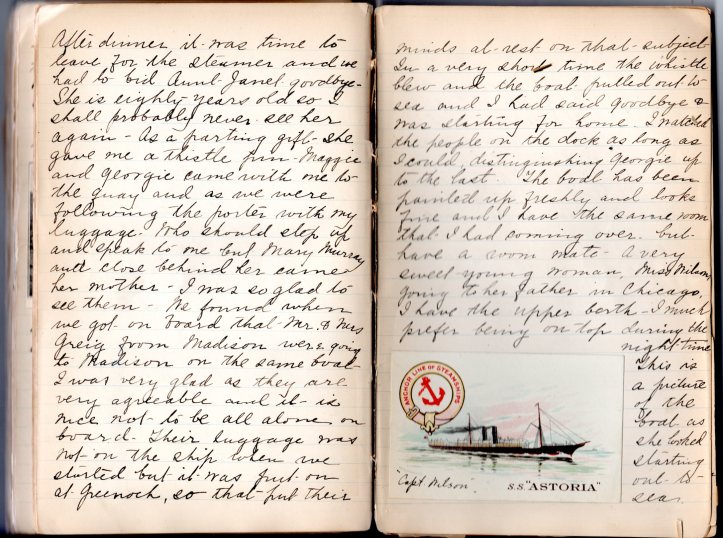 After dinner it was time to
leave for the steamer and we
had to bid Aunt Janet goodbye-
She is eighty years old so I
shall probably never see her
again - As a parting gift she
gave me a thistle pin - Maggie
and Georgie came with me to
the quay and as we were
following the porter with my
luggage. Who should step up
and speak to me but Mary Murray
and close behind her came
her mother - I was so glad to
see them - We found when
we got on board that Mr. & Mrs
Greig from Madison were going
to Madison on the same boat
I was very glad as they are
very agreeable and it is
nice not to be all alone on
board. Their luggage was
not on the ship when we
started but it was put on
at Greenock, so that put their
minds at rest on that subject
In a very short time the whistle
blew and the boat pulled out to
sea and I had said goodbye &
was starting for home. I watched
the people on the dock as long as
I could, distinguishing Georgie up
to the last. The boat has been
painted up freshly and looks
fine and I have the same room
that I had coming over. but
have a room mate - A very
sweet young woman, Miss Wilson,
going to her father in Chicago.
I have the upper berth - I much
prefer being on top during the
night time
This is
a picture
of the
boat as
she looked
starting
out to
sea.
ANCHOR LINE OF STEAMSHIPS
"Capt Wilson".
S.S. "ASTORIA"